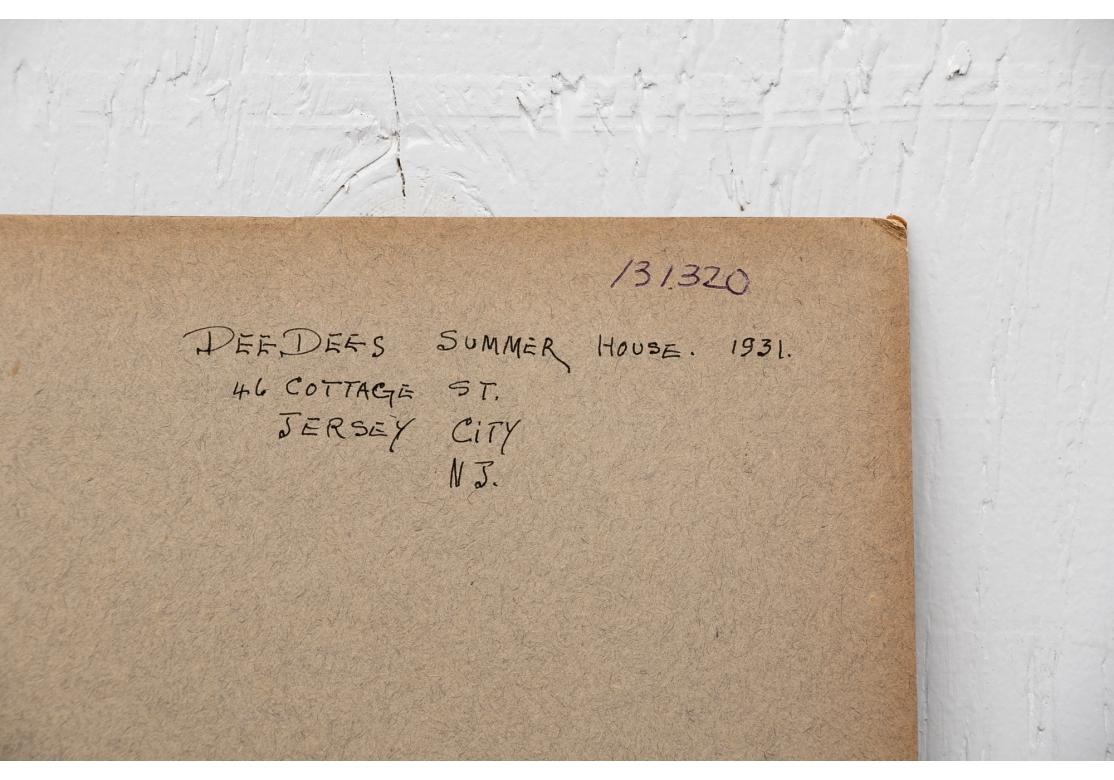 131.320
DEEDEES SUMMER HOUSE. 1931.
46 COTTAGE ST.
JERSEY CITY
N J.